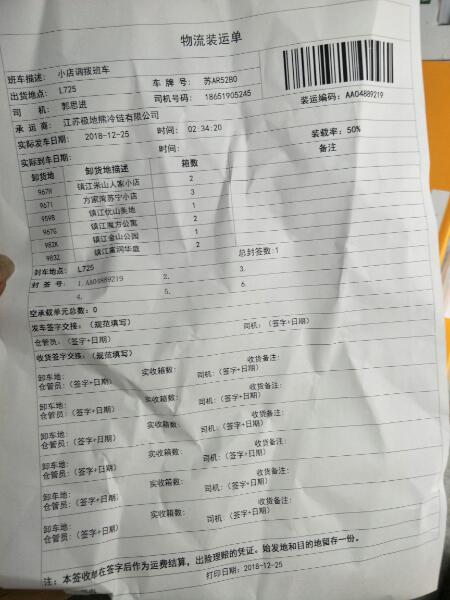 物流装运单
班车描述: 小店调拨班车
出货地点: L725 车 牌 号: 苏AR5280
司 机: 郭思进 司机号码: 18651905245
装运编码: AA04889219
承 运 商: 江苏极地熊冷链有限公司
实际发车日期: 2018-12-25 时间: 02:34:20 装载率: 50%
实际到车日期: 时间:
卸货地 卸货地描述 箱数 备注
967H 镇江米山人家小店 2
967I 方家湾苏宁小店 3
959B 镇江优山美地 1
967G 镇江魔方公寓 2
982K 镇江金山公园 1
983Z 镇江富润华庭 2
封车地点: L725 总封签数:1
封 签 号: 1.AA04889219 2. 3.
4. 5. 6.
空承载单元总数: 0
发车签字交接: (规范填写)
仓管员: (签字+日期) 司机: (签字+日期)
收货签字交接: (规范填写)
卸车地: 实收箱数: 收货备注:
仓管员: (签字+日期) 司机: (签字+日期)
卸车地: 实收箱数: 收货备注:
仓管员: (签字+日期) 司机: (签字+日期)
卸车地: 实收箱数: 收货备注:
仓管员: (签字+日期) 司机: (签字+日期)
卸车地: 实收箱数: 收货备注:
仓管员: (签字+日期) 司机: (签字+日期)
卸车地: 实收箱数: 收货备注:
仓管员: (签字+日期) 司机: (签字+日期)
卸车地: 实收箱数: 收货备注:
仓管员: (签字+日期) 司机: (签字+日期)
注: 本签收单在签字后作为运费结算, 出险理赔的凭证。始发地和目的地留存一份。
打印日期: 2018-12-25